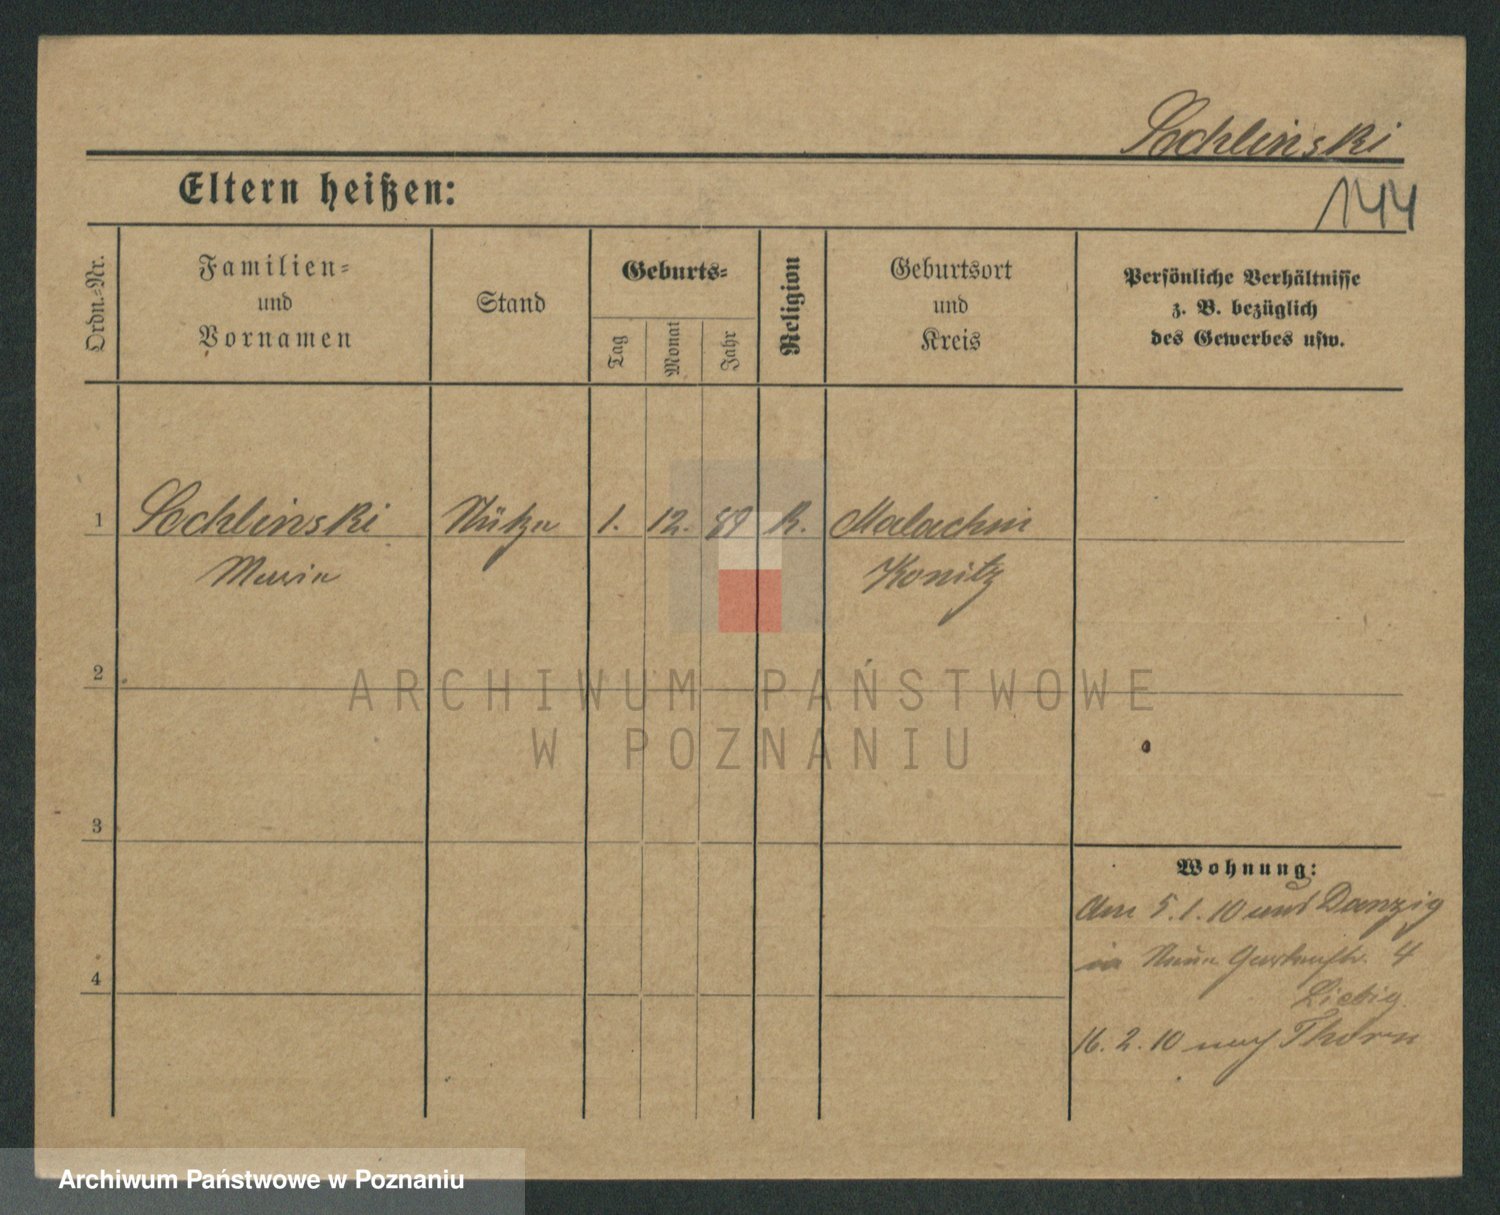 Sochlinski
144
Eltern heißen:
Ordn.-Nr.
Familien-
und
Vornamen
Stand
Geburts-
Tag
Monat
Jahr
Religion
Geburtsort
und
Kreis
Persönliche Verhältnisse
z. B. bezüglich
des Gewerbes usw.
1 Sochlinski Stütze 1. 12. 89 k. Malachin
Maria Konitz
2
ARCHIWUM PAŃSTWOWE
W POZNANIU
3
Wohnung:
Am 5.1.10 aus Danzig
in Neue Gartenstr. 4
4
Liebig
16.2.10 nach Thorn
Archiwum Państwowe w Poznaniu